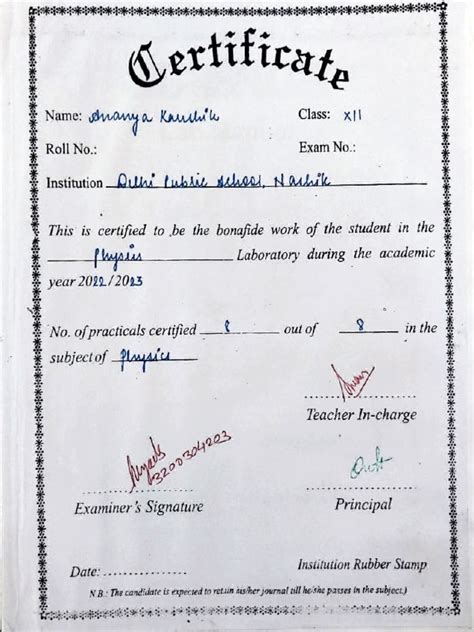 Certificate
Name: Ananya Kaushik Class: XII
Roll No.: Exam No.:
Institution Delhi Public School, Nashik
This is certified to be the bonafide work of the student in the
Physics Laboratory during the academic
year 2022/2023
No. of practicals certified 8 out of 8 in the
subject of Physics
Teacher In-charge
3200304203
Examiner's Signature Principal
Date: Institution Rubber Stamp
N.B.: The candidate is expected to retain his/her journal till he/she passes in the subject.)